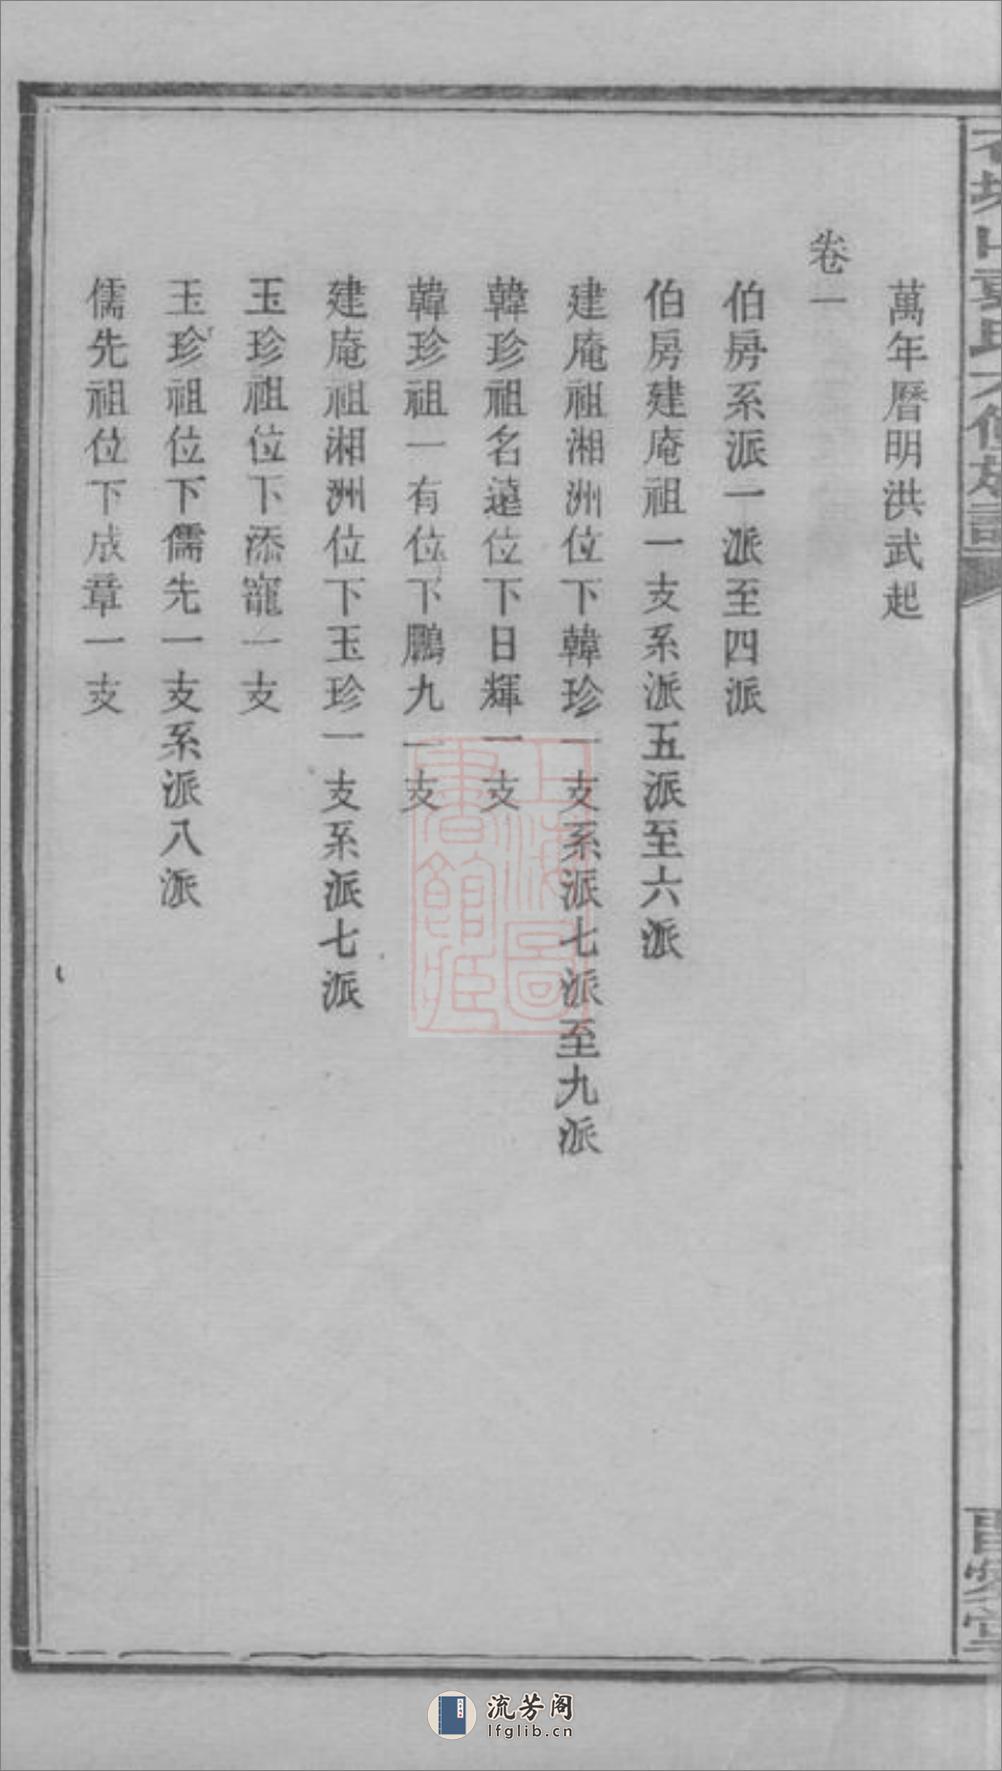 萬年曆明洪武起
卷一
伯房系派一派至四派
伯房建庵祖一支系派五派至六派
建庵祖湘洲位下韓珍一支系派七派至九派
韓珍祖名遠位下日輝一支
韓珍祖一有位下鵬九一支
建庵祖湘洲位下玉珍一支系派七派
玉珍祖位下添寵一支
玉珍祖位下儒先一支系派八派
儒先祖位下成章一支
上海圖書館藏
流芳阁
lfglib.cn